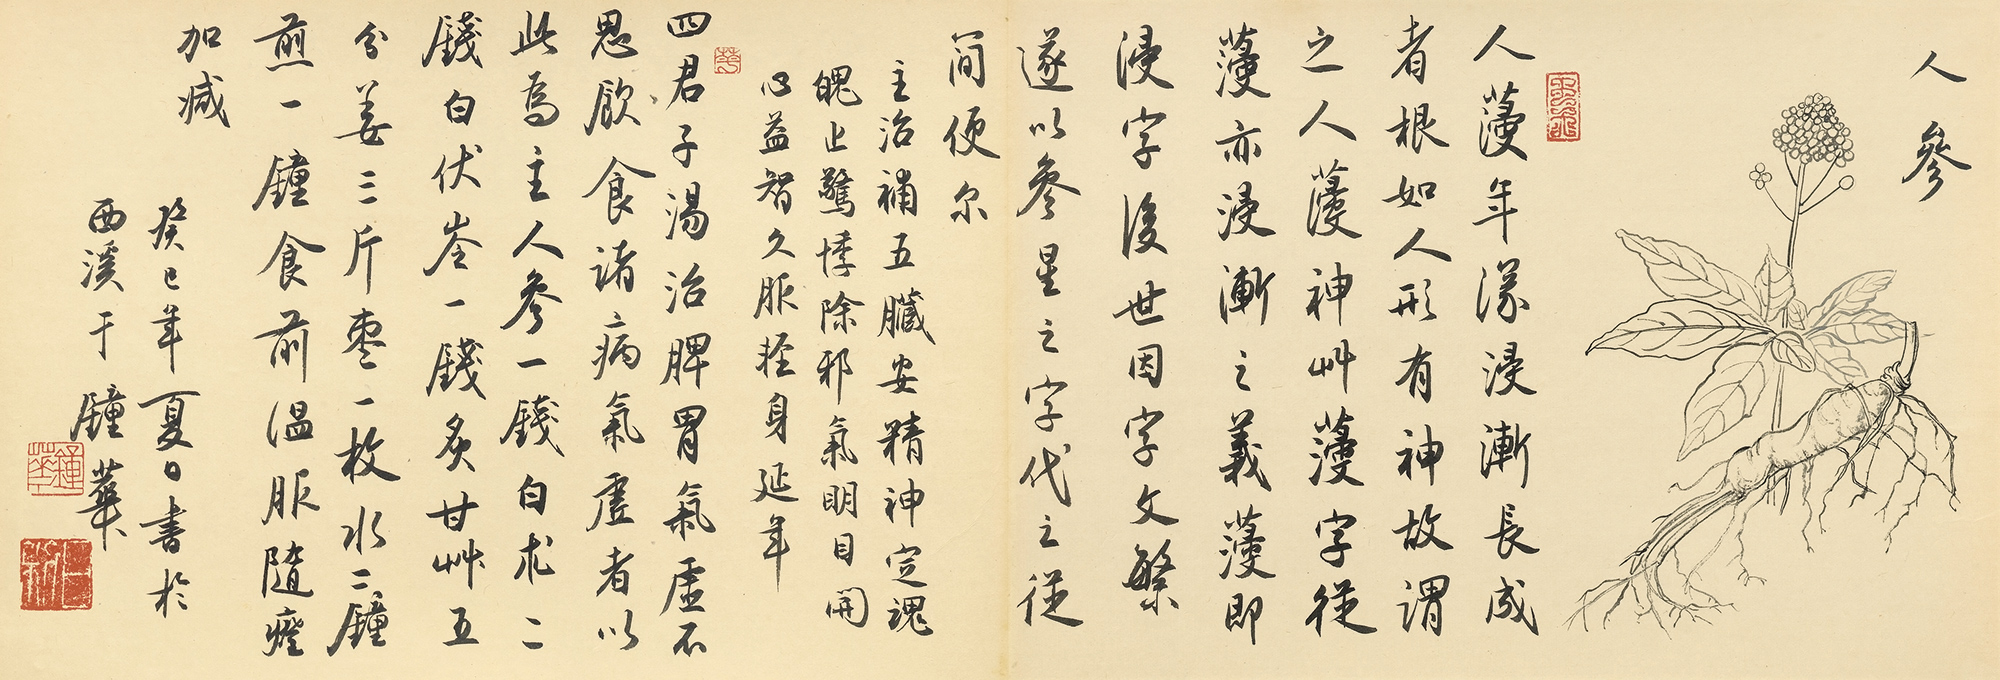 人參
人薓年深浸漸長成
者根如人形有神故謂
之人薓神艸薓字從
薓亦浸漸之義薓即
浸字後世因字文繁
遂以參星之字代之從
简便尔
主治補五臟安精神定魂
魄止驚悸除邪氣明目開
心益智久服輕身延年
四君子湯治脾胃氣虛不
思飲食諸病氣虛者以
此為主人參一錢白朮二
錢白伏苓一錢炙甘艸五
分姜三斤枣一枚水二鐘
煎一鐘食前溫服隨
加减
癸巳年夏日書於
西溪于鐘華